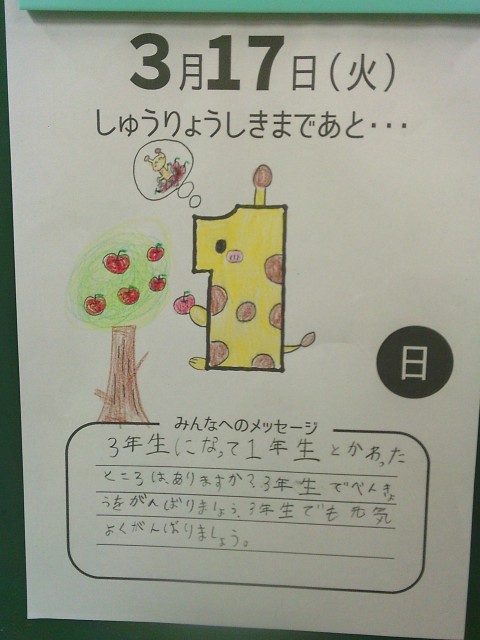 3月17日(火)
しゅうりょうしきまであと・・・
1
日
みんなへのメッセージ
3年生になって1年生とかわった
ところは、ありますか?3年生でべんきょ
うをがんばりましょう。3年生でも元気
よくがんばりましょう。